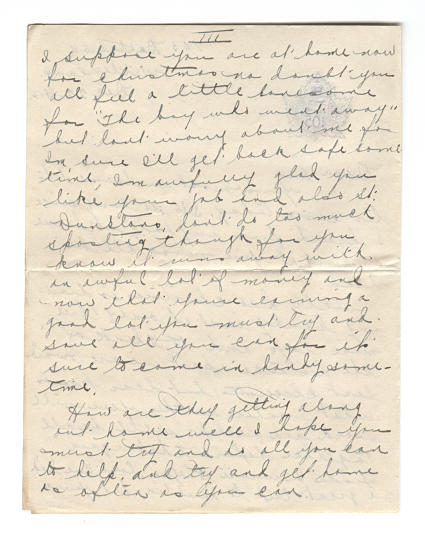 III
I suppose you are at home now
for christmas no doubt you
all feel a little lonesome
for "The boy who went away"
but dont worry about me for
Im sure I'll get back safe some
time, Im awfully glad you
like your job and also St.
Dunstans, dont do too much
sporting though for you
know it runs away with
an awful lot of money and
now that youre earning a
good lot you must try and
save all you can for its
sure to come in handy some-
time.
How are they getting along
out home well I hope you
must try and do all you can
to help, and try and get home
as often as you can.